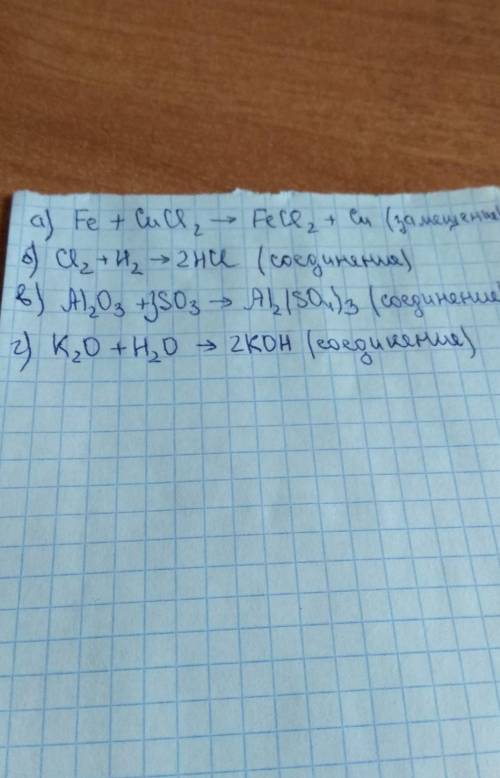 а) Fe + CuCl2 → FeCl2 + Cu (замещения)
б) Cl2 + H2 → 2HCl (соединения)
в) Al2O3 + 3SO3 → Al2(SO4)3 (соединения)
г) K2O + H2O → 2KOH (соединения)